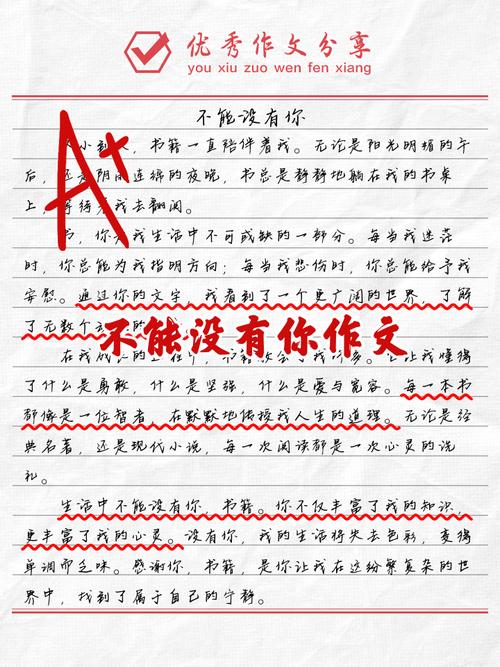 优秀作文分享
you xiu zuo wen fen xiang
不能没有你
小到 ，书籍一直陪伴着我。无论是阳光明媚的午
后，还是阴雨连绵的夜晚，书总是静静地躺在我的书桌
上，等待着我去翻阅。
书，你是我生活中不可或缺的一部分。每当我迷茫
时，你总能为我指明方向；每当我悲伤时，你总能给予我
安慰。通过你的文字，我看到了一个更广阔的世界，了解
了无数个
不能没有你作文
在我成 ，书籍教会了我 多。 让我懂得
了什么是勇敢，什么是坚强，什么是爱与宽容。每一本书
都像是一位智者，在默默地传授我人生的道理。无论是经
典名著，还是现代小说，每一次阅读都是一次心灵的洗
礼。
生活中不能没有你，书籍。你不仅丰富了我的知识，
更丰富了我的心灵。没有你，我的生活将失去色彩，变得
单调而乏味。感谢你，书籍，是你让我在这纷繁复杂的世
界中，找到了属于自己的宁静。
A+